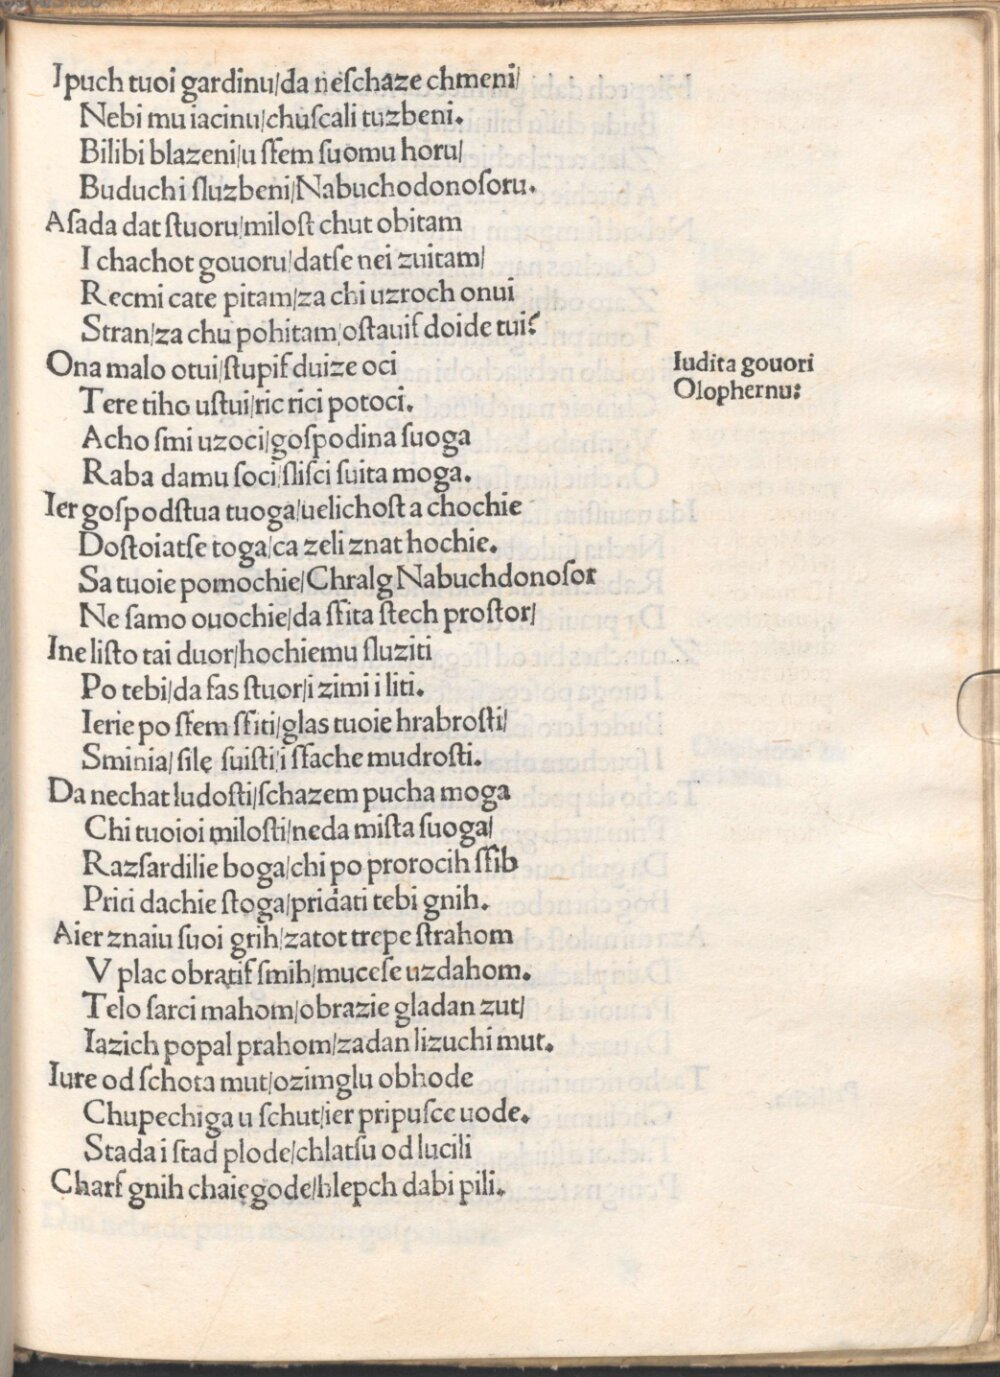 I puch tuoi gardinu/da neſchaze chmeni/
Nebi mu iacinu/chuſcali tuzbeni.
Bilibi blazeni/u ſfem ſuomu horu/
Buduchi ſluzbeni/Nabuchodonoſoru.
Aſada dat ſtuoru/miloſt chut obitam
I chachot gouoru/datſe nei zuitam/
Recmi cate pitam/za chi uzroch onui
Stran/za chu pohitam/oſtauiſ doide tui?
Ona malo otui/ſtupiſ duize oci
Tere tiho uſtui/ric rici potoci.
Acho ſmi uzoci/goſpodina ſuoga
Raba damu ſoci/ſliſci ſuita moga.
Ier goſpodſtua tuoga/uelichoſt a chochie
Doſtoiatſe toga/ca zeli znat hochie.
Sa tuoie pomochie/Chralg Nabuchdonoſor
Ne ſamo ouochie/da ſſita ſtech proſtor/
Ine liſto tai duor/hochiemu ſluziti
Po tebi/da ſas ſtuor/i zimi i liti.
Ierie po ſfem ſfiti/glas tuoie hrabroſti/
Sminia/ ſilę ſuiſti/i ſfache mudroſti.
Da nechat ludoſti/ſchazem pucha moga
Chi tuoioi miloſti/neda miſta ſuoga/
Razſardilie boga/chi po prorocih ſſib
Priti dachie ſtoga/pridati tebi gnih.
Aier znaiu ſuoi grih/zatot trepe ſtrahom
V plac obratiſ ſmih/muceſe uzdahom.
Telo ſarci mahom/obrazie gladan zut/
Iazich popal prahom/zadan lizuchi mut.
Iure od ſchota mut/ozimglu obhode
Chupechiga u ſchut/ier pripuſce uode.
Stada i ſtad plode/chlatſu od lucili
Charſ gnih chaię gode/hlepch dabi pili.
Iudita gouori
Olophernu: